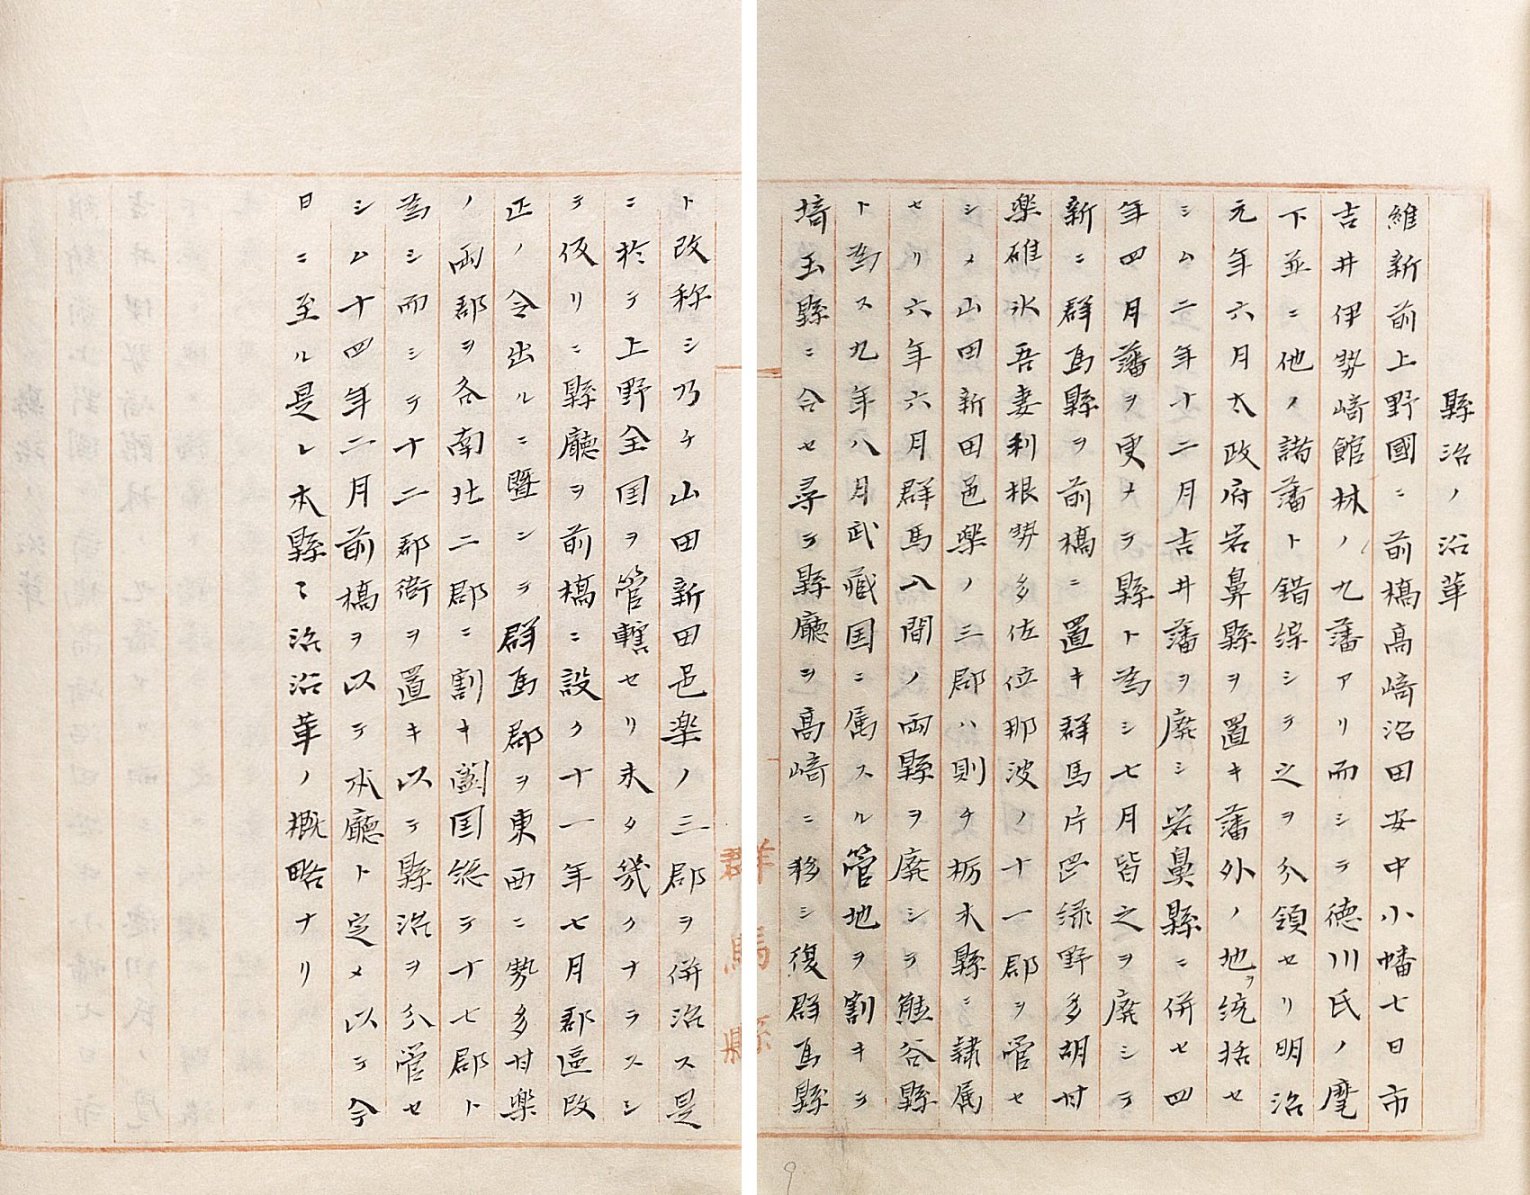 縣治ノ沿革
維新前上野國ニ前橋髙﨑沼田安中小幡七日市
吉井伊勢﨑館林ノ九藩アリ而シテ德川氏ノ麾
下並ニ他ノ諸藩ト錯綜シテ之ヲ分領セリ明治
元年六月太政府岩鼻縣ヲ置キ藩外ノ地ヲ統括セ
シム二年十二月吉井藩ヲ廃シ岩鼻縣ニ併セ四
年四月藩ヲ更メテ縣ト為シ七月皆之ヲ廃シテ
新ニ群馬縣ヲ前橋ニ置キ群馬片岡緑野多胡甘
楽碓氷吾妻利根勢多佐位那波ノ十一郡ヲ管セ
シメ山田新田邑楽ノ三郡ハ則チ栃木縣ニ隷属
セリ六年六月群馬入間ノ両縣ヲ廃シテ熊谷縣
ト為ス九年八月武藏国ニ属スル管地ヲ割キテ
埼玉縣ニ合セ尋テ縣廳ヲ髙﨑ニ移シ復群馬縣
ト改称シ乃チ山田新田邑楽ノ三郡ヲ併治ス是
ニ於テ上野全国ヲ管轄セリ未タ幾クナラスシ
テ仮リニ縣廳ヲ前橋ニ設ク十一年七月郡區改
正ノ令出ルニ曁ンテ群馬郡ヲ東西ニ勢多甘楽
ノ両郡ヲ各南北二郡ニ割キ闔国總テ十七郡ト
為シ而シテ十二郡衙ヲ置キ以テ縣治ヲ分管セ
シム十四年二月前橋ヲ以テ本廳ト定メ以テ今
日ニ至ル是レ本縣々治沿革ノ概略ナリ
群馬縣